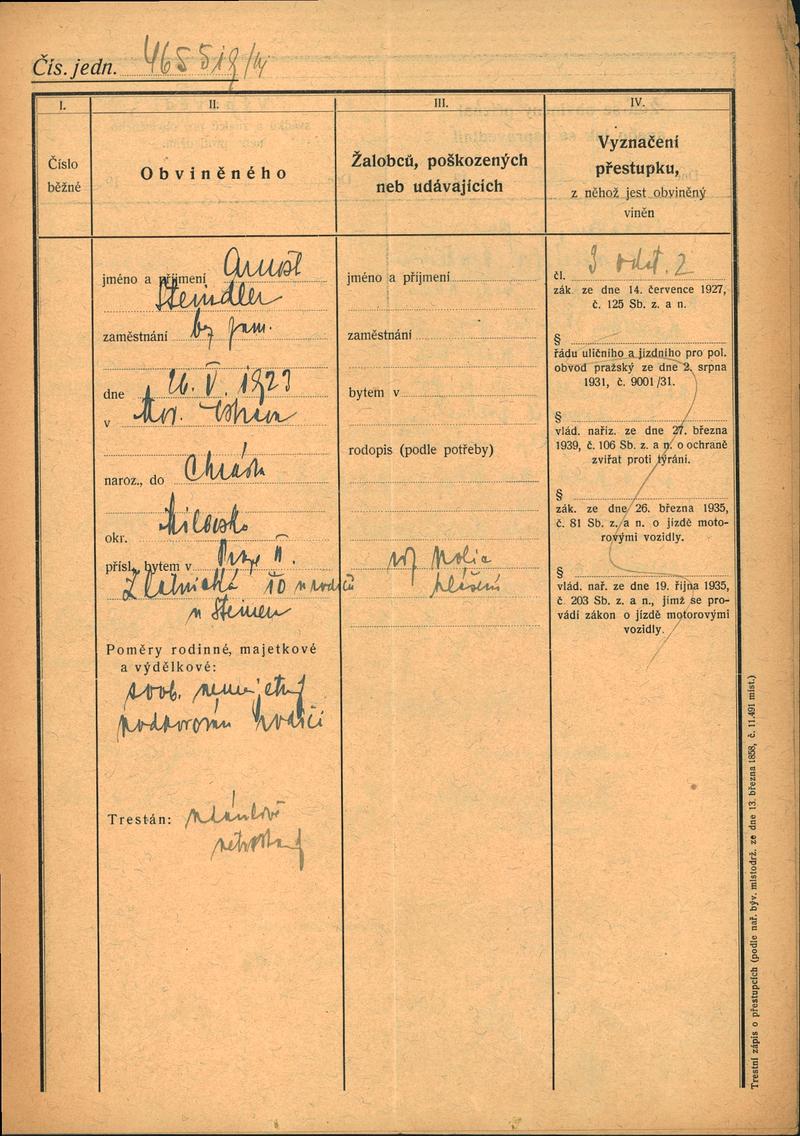 Čís. jedn. 46551
I.
II.
III.
IV.
Číslo
běžné
Obviněného
Žalobců, poškozených
neb udávajících
Vyznačení
přestupku,
z něhož jest obviněný
viněn
jméno a příjmení Arnošt
Steindler
zaměstnání bez zam.
dne 26. V. 1923
v Mor. Ostrava
naroz., do
okr. Milevsko
přísl., bytem v Praze II.
Zlatnická 10 u rodičů
Poměry rodinné, majetkové
a výdělkové:
svob. nemajetný
podporován rodiči
Trestán:
netrestaný
jméno a příjmení
zaměstnání
bytem v
rodopis (podle potřeby)
viz
hlášení
čl. 3 odst. 2
zák ze dne 14. července 1927,
č. 125 Sb. z. a n.
§
řádu uličního a jízdního pro pol.
obvod pražský ze dne 2. srpna
1931, č. 9001/31.
§
vlád. naříz. ze dne 27. března
1939, č. 106 Sb. z. a n. o ochraně
zvířat proti týrání.
§
zák. ze dne 26. března 1935,
č. 81 Sb. z. a n. o jízdě moto-
rovými vozidly.
§
vlád. nař. ze dne 19. října 1935,
č. 203 Sb. z. a n., jímž se pro-
vádí zákon o jízdě motorovými
vozidly.
Trestní zápis o přestupcích (podle nař. býv. místodrž. ze dne 13. března 1858, č. 11.491 míst.)